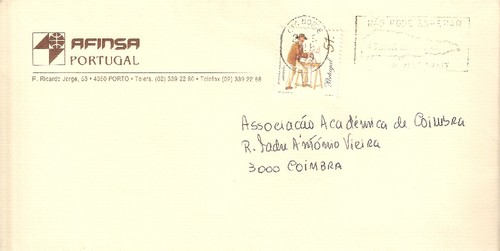 AFINSA
PORTUGAL
R. Ricardo Jorge, 53 • 4050 PORTO • Telefs. (02) 339 22 80 • Telefax (02) 339 22 88
Portugal
Associação Académica de Coimbra
R. Padre António Vieira
3000 COIMBRA